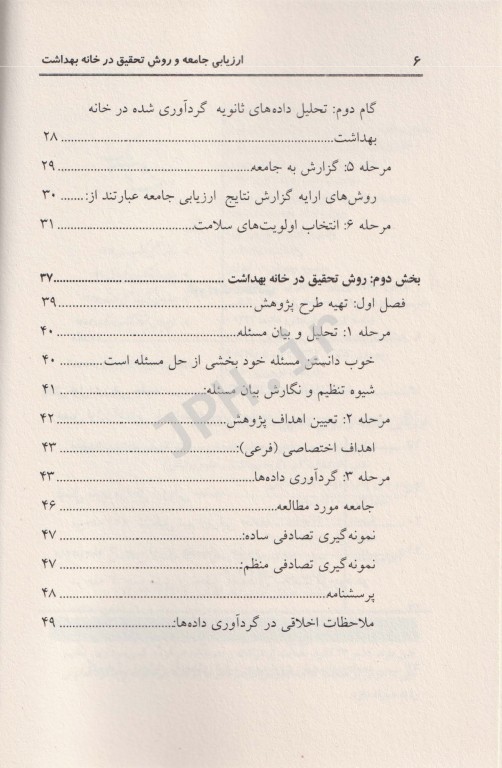 ۶ ارزیابی جامعه و روش تحقیق در خانه بهداشت
گام دوم: تحلیل داده‌های ثانویه گردآوری شده در خانه
بهداشت ۲۸
مرحله ۵: گزارش به جامعه ۲۹
روش‌های ارایه گزارش نتایج ارزیابی جامعه عبارتند از: ۳۰
مرحله ۶: انتخاب اولویت‌های سلامت ۳۱
بخش دوم: روش تحقیق در خانه بهداشت ۳۷
فصل اول: تهیه طرح پژوهش ۳۹
مرحله ۱: تحلیل و بیان مسئله ۴۰
خوب دانستن مسئله خود بخشی از حل مسئله است ۴۰
شیوه تنظیم و نگارش بیان مسئله: ۴۱
مرحله ۲: تعیین اهداف پژوهش ۴۲
اهداف اختصاصی (فرعی): ۴۳
مرحله ۳: گردآوری داده‌ها ۴۳
جامعه مورد مطالعه ۴۶
نمونه‌گیری تصادفی ساده: ۴۷
نمونه‌گیری تصادفی منظم: ۴۷
پرسشنامه ۴۸
ملاحظات اخلاقی در گردآوری داده‌ها: ۴۹
JPH.ir